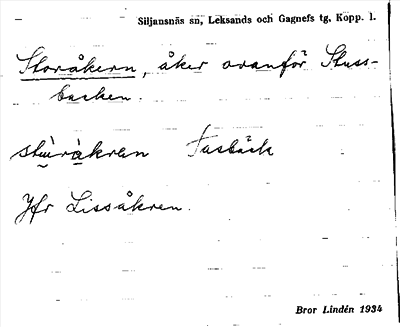 Siljansnäs sn, Leksands och Gagnefs tg, Kopp. l.
Storåkern, åker ovanför Stuss-
backen.
Jfr Lissåkren.
Bror Lindén 1934